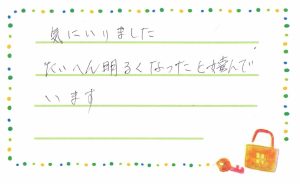 気にいりました
たいへん明るくなったと喜んで
います